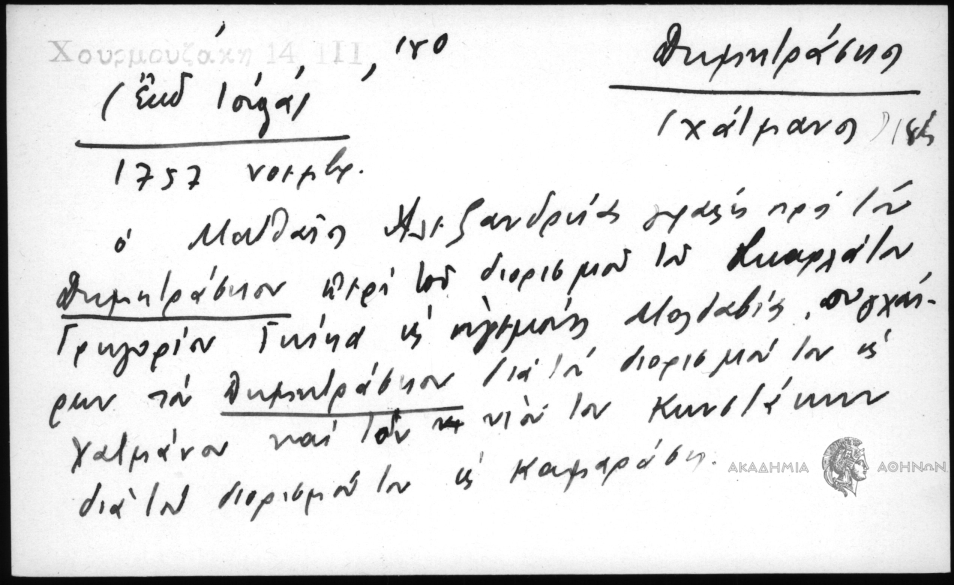 Χουρμουζάκη 14 III, 180
Δημητράσκος
(ἔκδ
(χάτμανος)
1757 νοεμβρ.
ὁ Ματθαῖος Ἀλεξανδρείας γράφει πρὸς τὸν
Δημητράσκον περὶ τοῦ διορισμοῦ τοῦ Σκαρλάτου
Γρηγορίου Γκίκα εἰς ἡγεμόνα Μολδαβίας, συγχαί-
ρων τὸν Δημητράσκον διὰ τὸν διορισμόν του εἰς
χατμάνον καὶ τὸν υἱόν του Κωνστάκην
διὰ τοῦ διορισμοῦ του εἰς καμαράσην.
ΑΚΑΔΗΜΙΑ ΑΘΗΝΩΝ